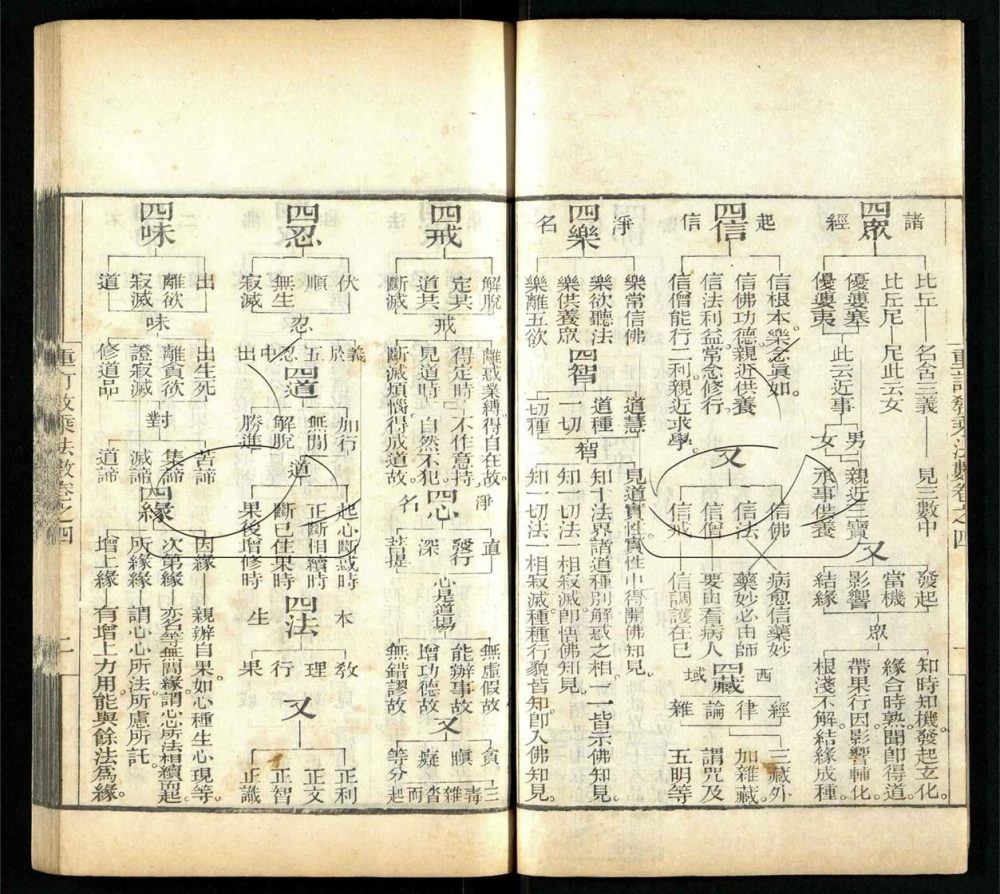 諸經
四眾
比丘 名含三義 見三數中
比丘尼 尼此云女
優婆塞 此云近事 男 親近三寶
優婆夷 女 承事供養
又
發起 知時知機發起立化。
當機 緣合時熟聞即得道。
影響 眾 帶果行因影響輔化。
結緣 根淺不解結緣成種。
起信
四信
信根本樂念眞如。
信佛功德親近供養
信法利益常念修行。
信僧能行二利親近求學。
又
信佛 病愈信藥妙
信法 藥妙必由師
信僧 要由看病人
信戒 信調護在巳
西域
四藏
經 三藏外
律 加雜藏。
論 謂咒及
雜 五明等
淨名
四樂
樂常信佛
樂欲聽法
樂供養眾
樂離五欲
四智
道慧 見道實性實性中得開佛知見。
道種 智 知十法界諸道種別解惑之相一一皆示佛知見。
一切 知一切法一相寂滅即悟佛知見。
一切種 知一切法一相寂滅種種行貌皆知即入佛知見。
四戒
解脫 離惑業縛。得自在故。
定共 戒 得定時 不作意持
道共 見道時 自然不犯。
斷滅 斷滅煩惱得成道故。
淨名
四心
直 無虛假故
發行 心是道場 能辦事故
深 增功德故
菩提 無錯謬故
又
貪
瞋 毒
癡
等分 三毒雜沓而起
四忍
伏
順 忍
無生
寂滅
義於五忍中出
四道
加行 起心斷惑時
無間 道 正斷相續時
解脫 斷已住果時
勝進 果後增修時
本生
四法
教
理
行
果
又
正利
正文
正智
正識
四味
出 出生死 苦諦
離欲 味 離貪欲 對 集諦
寂滅 證寂滅 滅諦
道 修道品 道諦
四緣
因緣 親辦自果。如心種生心現等。
次第緣 亦名等無間緣。謂心心所法相續而起。
所緣緣 謂心心所法。所慮所託。
增上緣 有增上力用能與餘法爲緣。
重訂教乘法數卷之四